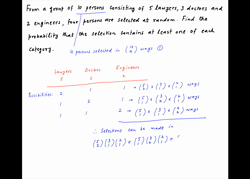 From a group of 10 persons consisting of 5 lawyers, 3 doctors and
2 engineers, four persons are selected at random. Find the
probability that the selection contains at least one of each
category.
4 persons selected in (10 4) ways ①
Lawyers Doctors Engineers
5 3 2
Possibilities: 2 1 1 → (5 2) × (3 1) × (2 1) ways
1 2 1 → (5 1) × (3 2) × (2 1) ways
1 1 2 → (5 1) × (3 1) × (2 2) ways
∴ Selections can be made in
(5 2)(3 1)(2 1) + (5 1)(3 2)(2 1) +